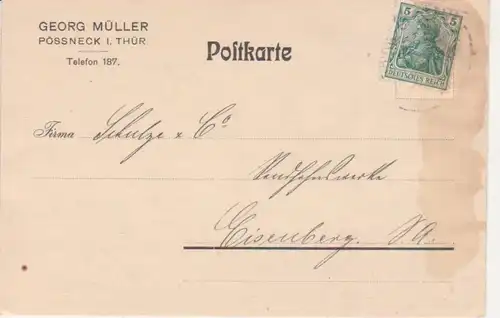 GEORG MÜLLER
PÖSSNECK I. THÜR.
Telefon 187.
Postkarte
5 5
DEUTSCHES REICH
Firma Schulze & Co
Eisenberg. S.A.